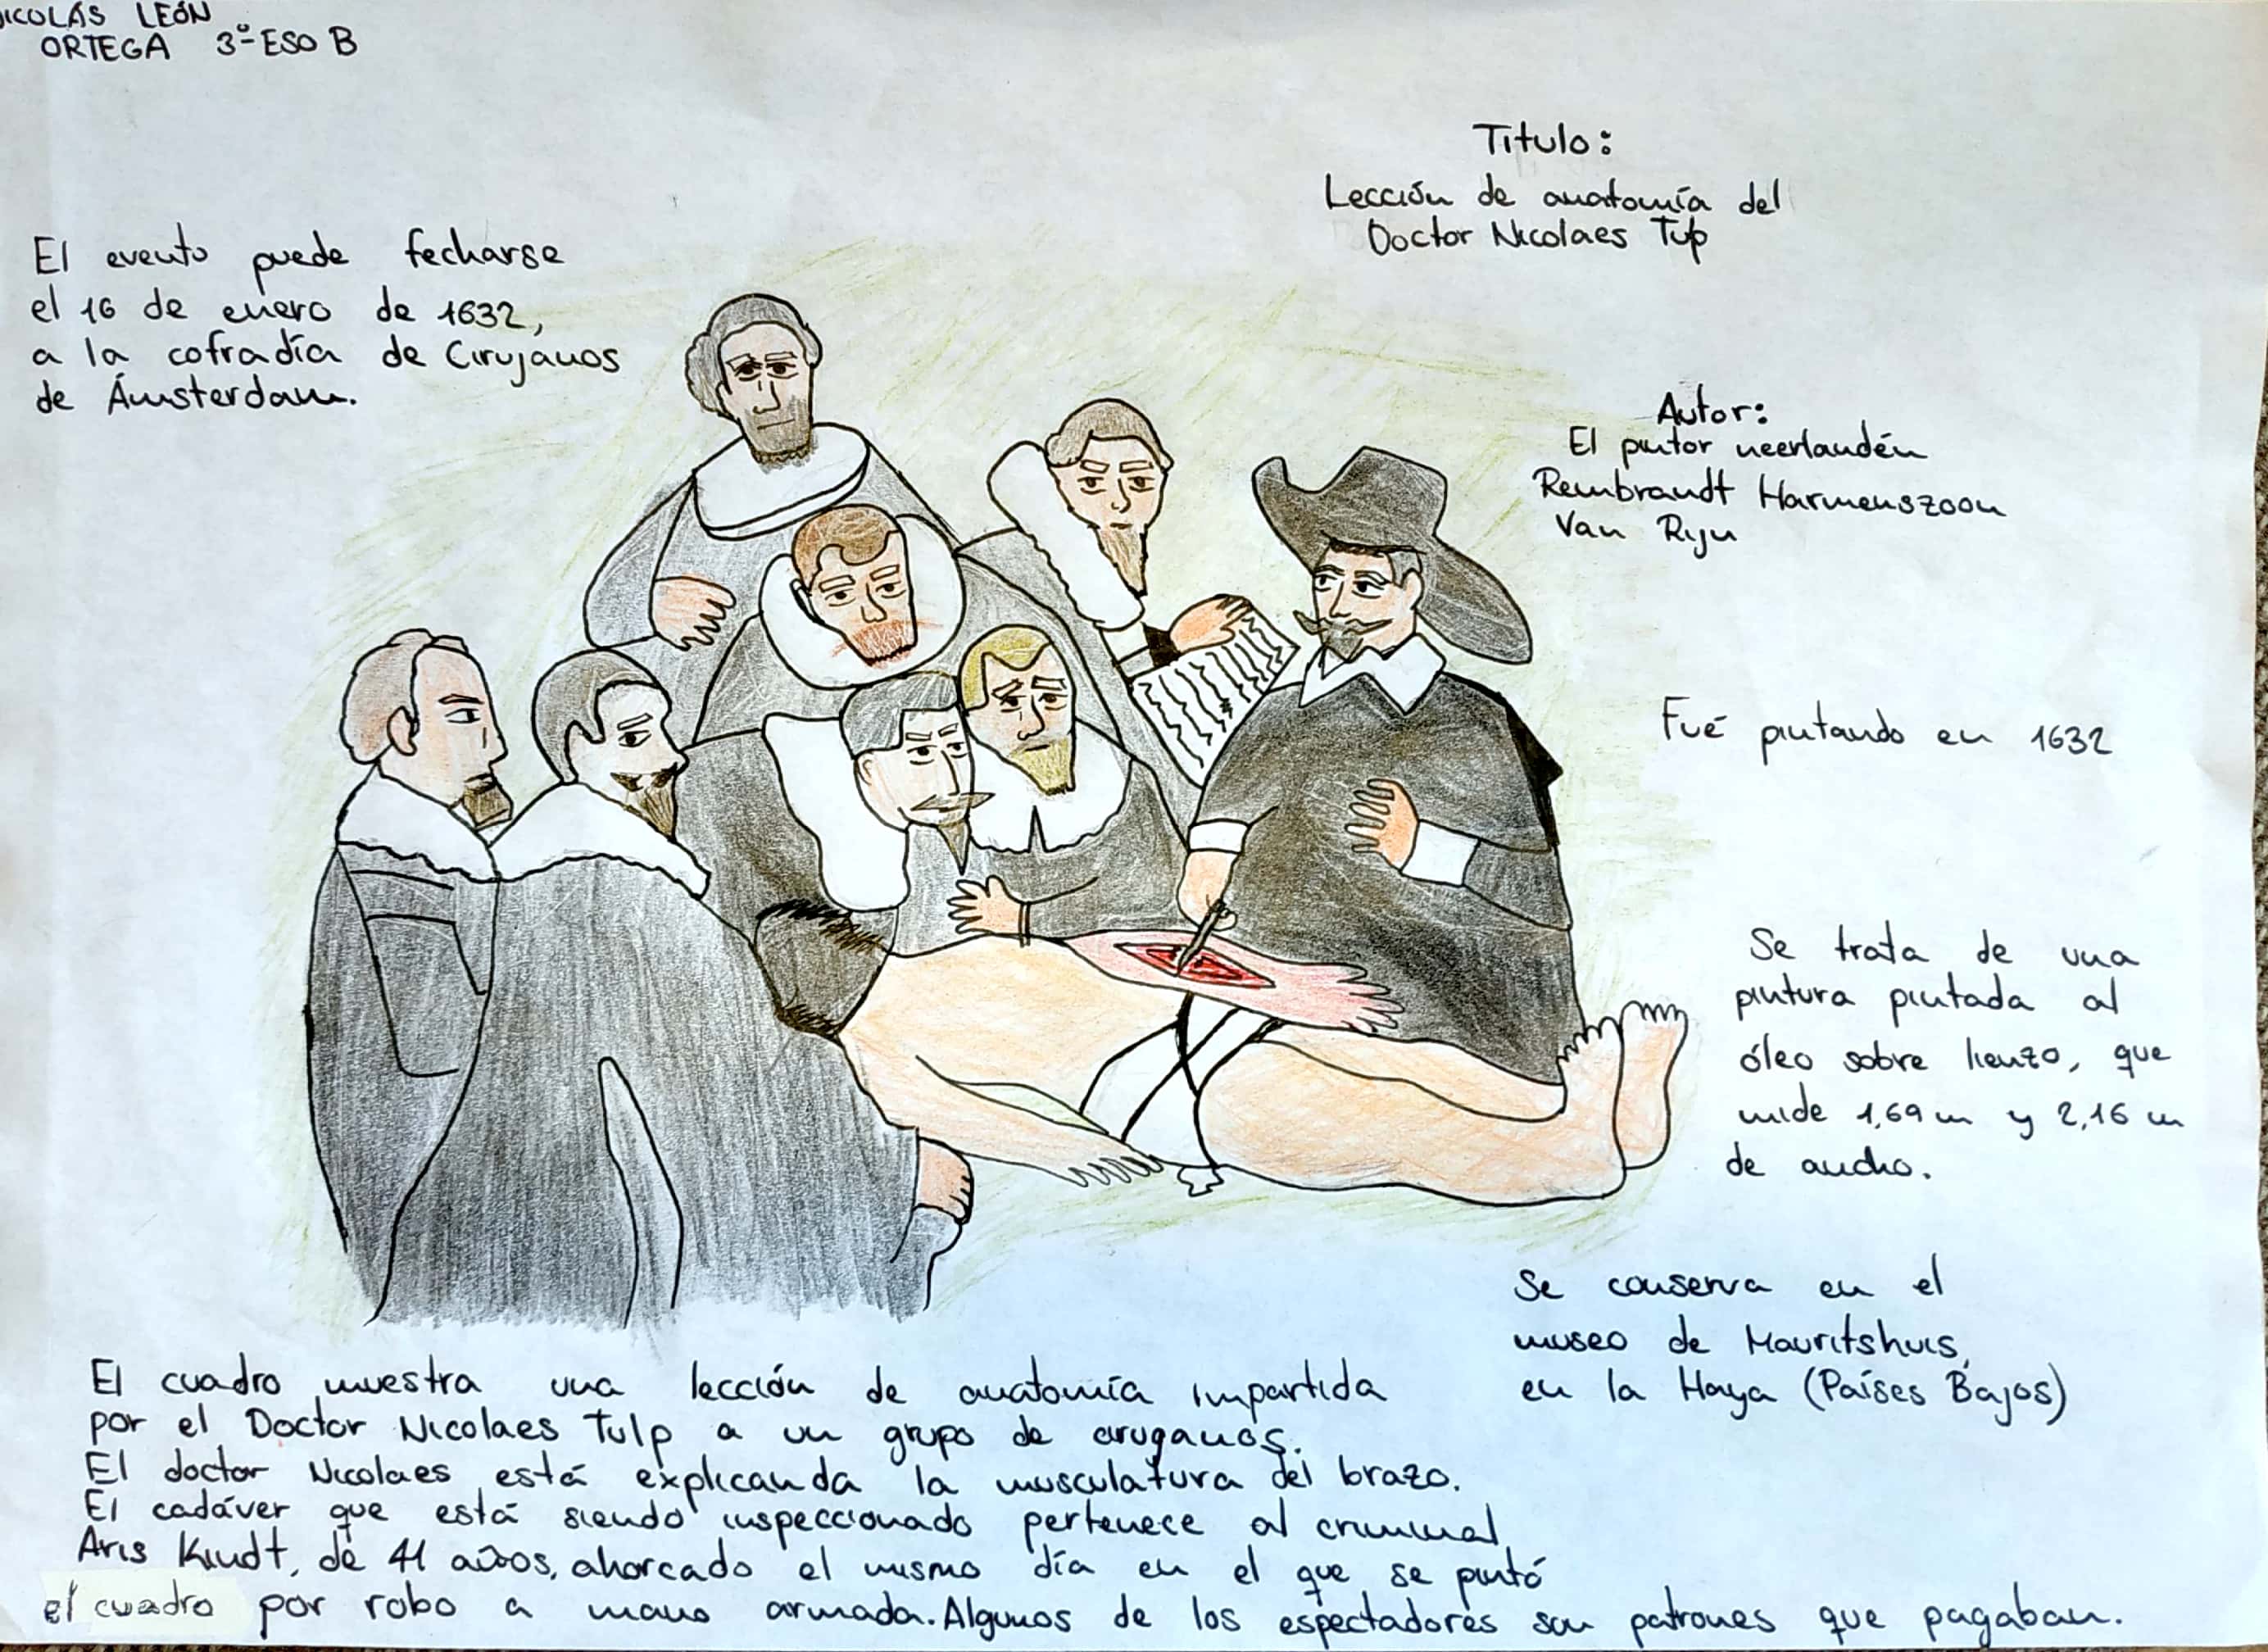 NICOLÁS LEÓN
ORTEGA 3º ESO B
Titulo:
Lección de anatomía del
Doctor Nicolaes Tup
El evento puede fecharse
el 16 de enero de 1632,
a la cofradía de Cirujanos
de Ámsterdam.
Autor:
El pintor neerlandén
Rembrandt Harmenszoon
Van Rijn
Fué pintando en 1632
Se trata de una
pintura pintada al
óleo sobre lienzo, que
mide 1,69 m y 2,16 m
de ancho.
Se conserva en el
museo de Mauritshuis,
en la Haya (Países Bajos)
El cuadro muestra una lección de anatomía impartida
por el Doctor Nicolaes Tulp a un grupo de ciruganos.
El doctor Nicolaes está explicanda la musculatura del brazo.
El cadáver que está siendo inspeccionado pertenece al criminal
Aris Kindt, de 41 años, ahorcado el mismo día en el que se pintó
el cuadro por robo a mano armada. Algunos de los espectadores son patrones que pagaban.